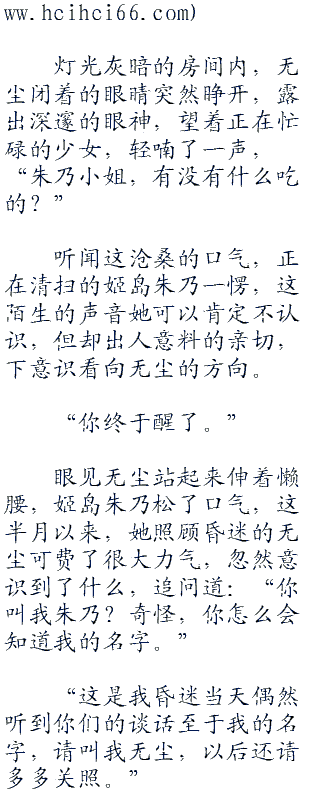 ww.hcihci66.com)
灯光灰暗的房间内，无
尘闭着的眼睛突然睁开，露
出深邃的眼神，望着正在忙
碌的少女，轻喃了一声，
“朱乃小姐，有没有什么吃
的？”
听闻这沧桑的口气，正
在清扫的姬岛朱乃一愣，这
陌生的声音她可以肯定不认
识，但却出人意料的亲切，
下意识看向无尘的方向。
“你终于醒了。”
眼见无尘站起来伸着懒
腰，姬岛朱乃松了口气，这
半月以来，她照顾昏迷的无
尘可费了很大力气，忽然意
识到了什么，追问道：“你
叫我朱乃？奇怪，你怎么会
知道我的名字。”
“这是我昏迷当天偶然
听到你们的谈话至于我的名
字，请叫我无尘，以后还请
多多关照。”